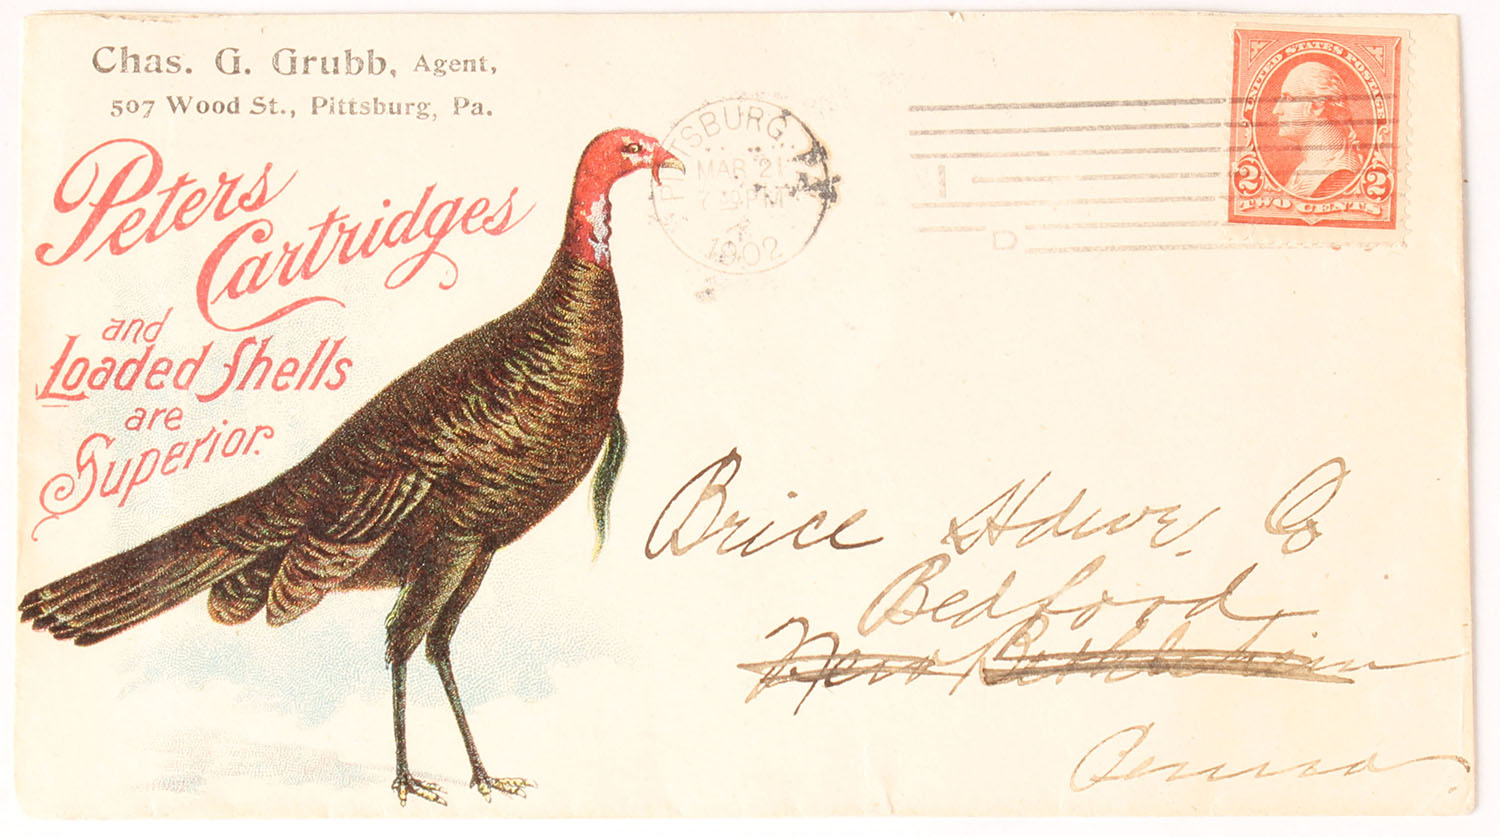 Chas. G. Grubb, Agent,
507 Wood St., Pittsburg, Pa.
Peters
Cartridges
and
Loaded Shells
are
Superior.
PITTSBURG, PA.
MAR 21
7 PM
1902
1
D
UNITED STATES POSTAGE
2 2
TWO CENTS
Brice Hdwe. Co
Bedford
New Bethlehem
Penna